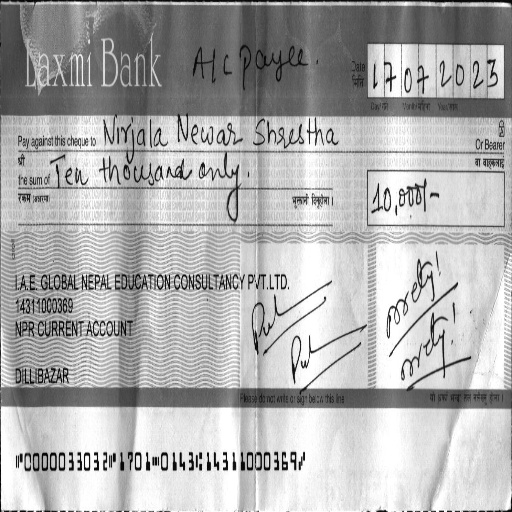 Laxmi Bank
A/C Payee.
Date 17072023
मिति
Pay against this cheque to Nirjala Newar Shrestha
श्री
Or Bearer
वा वाहकलाई
the sum of Ten thousand only.
रुकम (अक्षरमा)
10,000/-
I.A.E. GLOBAL NEPAL EDUCATION CONSULTANCY PVT.LTD.
14311000369
NPR CURRENT ACCOUNT
DILLIBAZAR
Please do not write or sign below this line
⑈0000033032⑈1701⑉0143⑆14311000369⑇